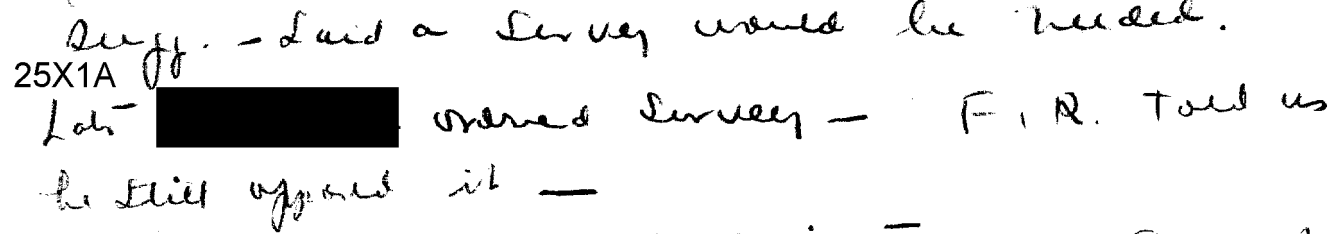 Sugg. - Said a Survey would be needed.
25X1A
ordered Survey - F.R. told us
he still opposed it -